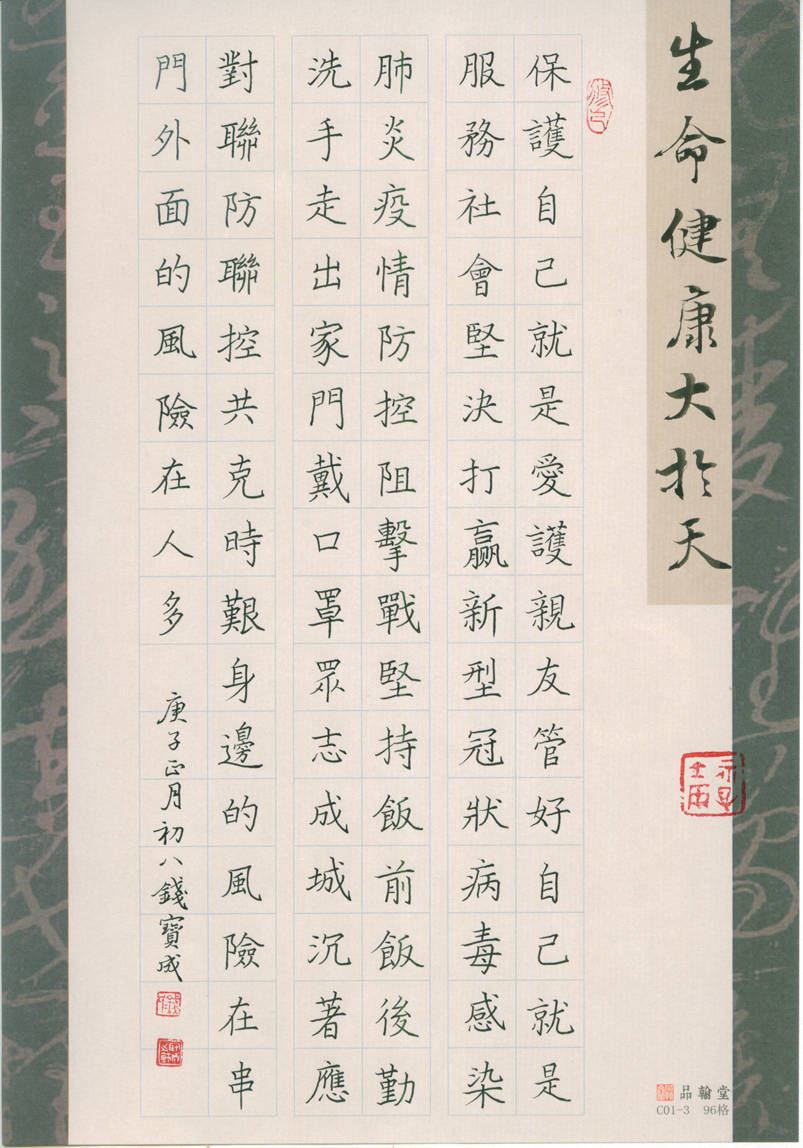 生命健康大於天
保護自己就是愛護親友管好自己就是
服務社會堅決打贏新型冠狀病毒感染
肺炎疫情防控阻擊戰堅持飯前飯後勤
洗手走出家門戴口罩眾志成城沉著應
對聯防聯控共克時艱身邊的風險在串
門外面的風險在人多
庚子正月初八錢寶成
品翰堂
C01-3 96格